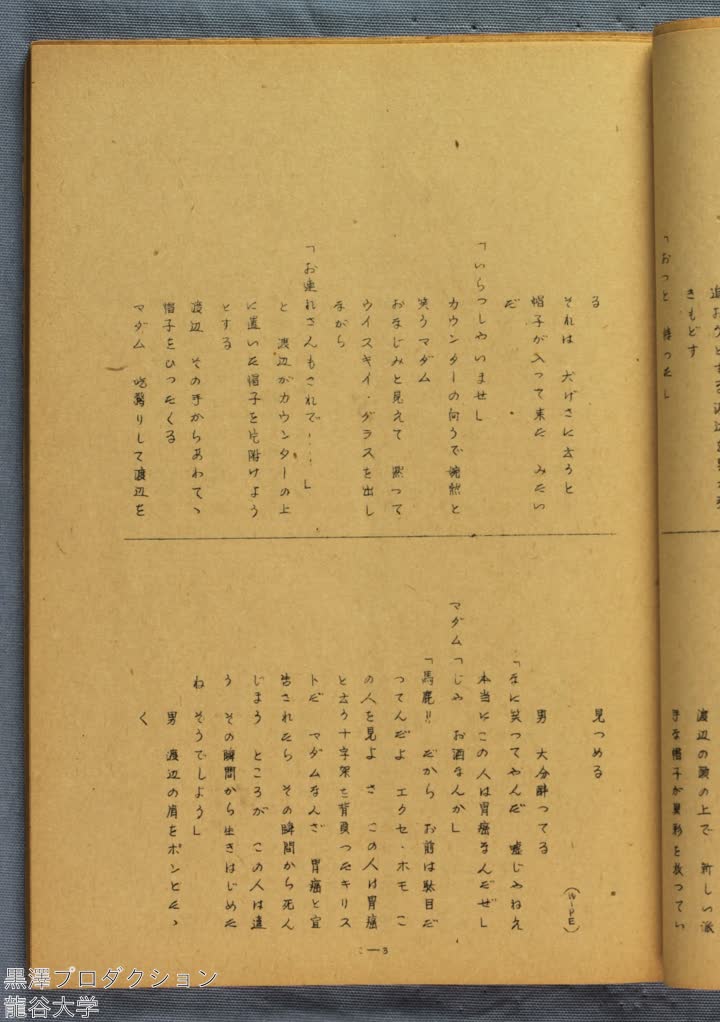 渡辺の頭の上で 新しい派
手な帽子が異彩を放つてい
きもどす
「おつと 待つた」
る
それは 大げさに云うと
帽子が入つて来た みたい
だ
「いらつしやいませ」
カウンターの向うで 嫣然と
笑うマダム
おなじみと見えて 黙つて
ウイスキイ・グラスを出し
ながら
「お連れさんもされで……」
と 渡辺がカウンターの上
に置いた帽子を片附けよう
とする
渡辺 その手からあわてゝ
帽子をひつたくる
マダム 吃驚りして渡辺を
見つめる
(WIPE)
男 大分酔つてる
「なに笑つてやんだ 嘘じやねえ
本当にこの人は胃癌なんだぜ」
マダム「じや お酒なんか」
「馬鹿!! だから お前は駄目だ
つてんだよ エクセ・ホモ こ
の人を見よ さ この人は胃癌
と云う十字架を背負つたキリス
トだ マダムなんざ 胃癌と宣
告されたら その瞬間から死ん
じまう ところが この人は違
う その瞬間から生きはじめた
ね そうでしよう」
男 渡辺の肩をポンとたゝ
く
—3
黒澤プロダクション
龍谷大学